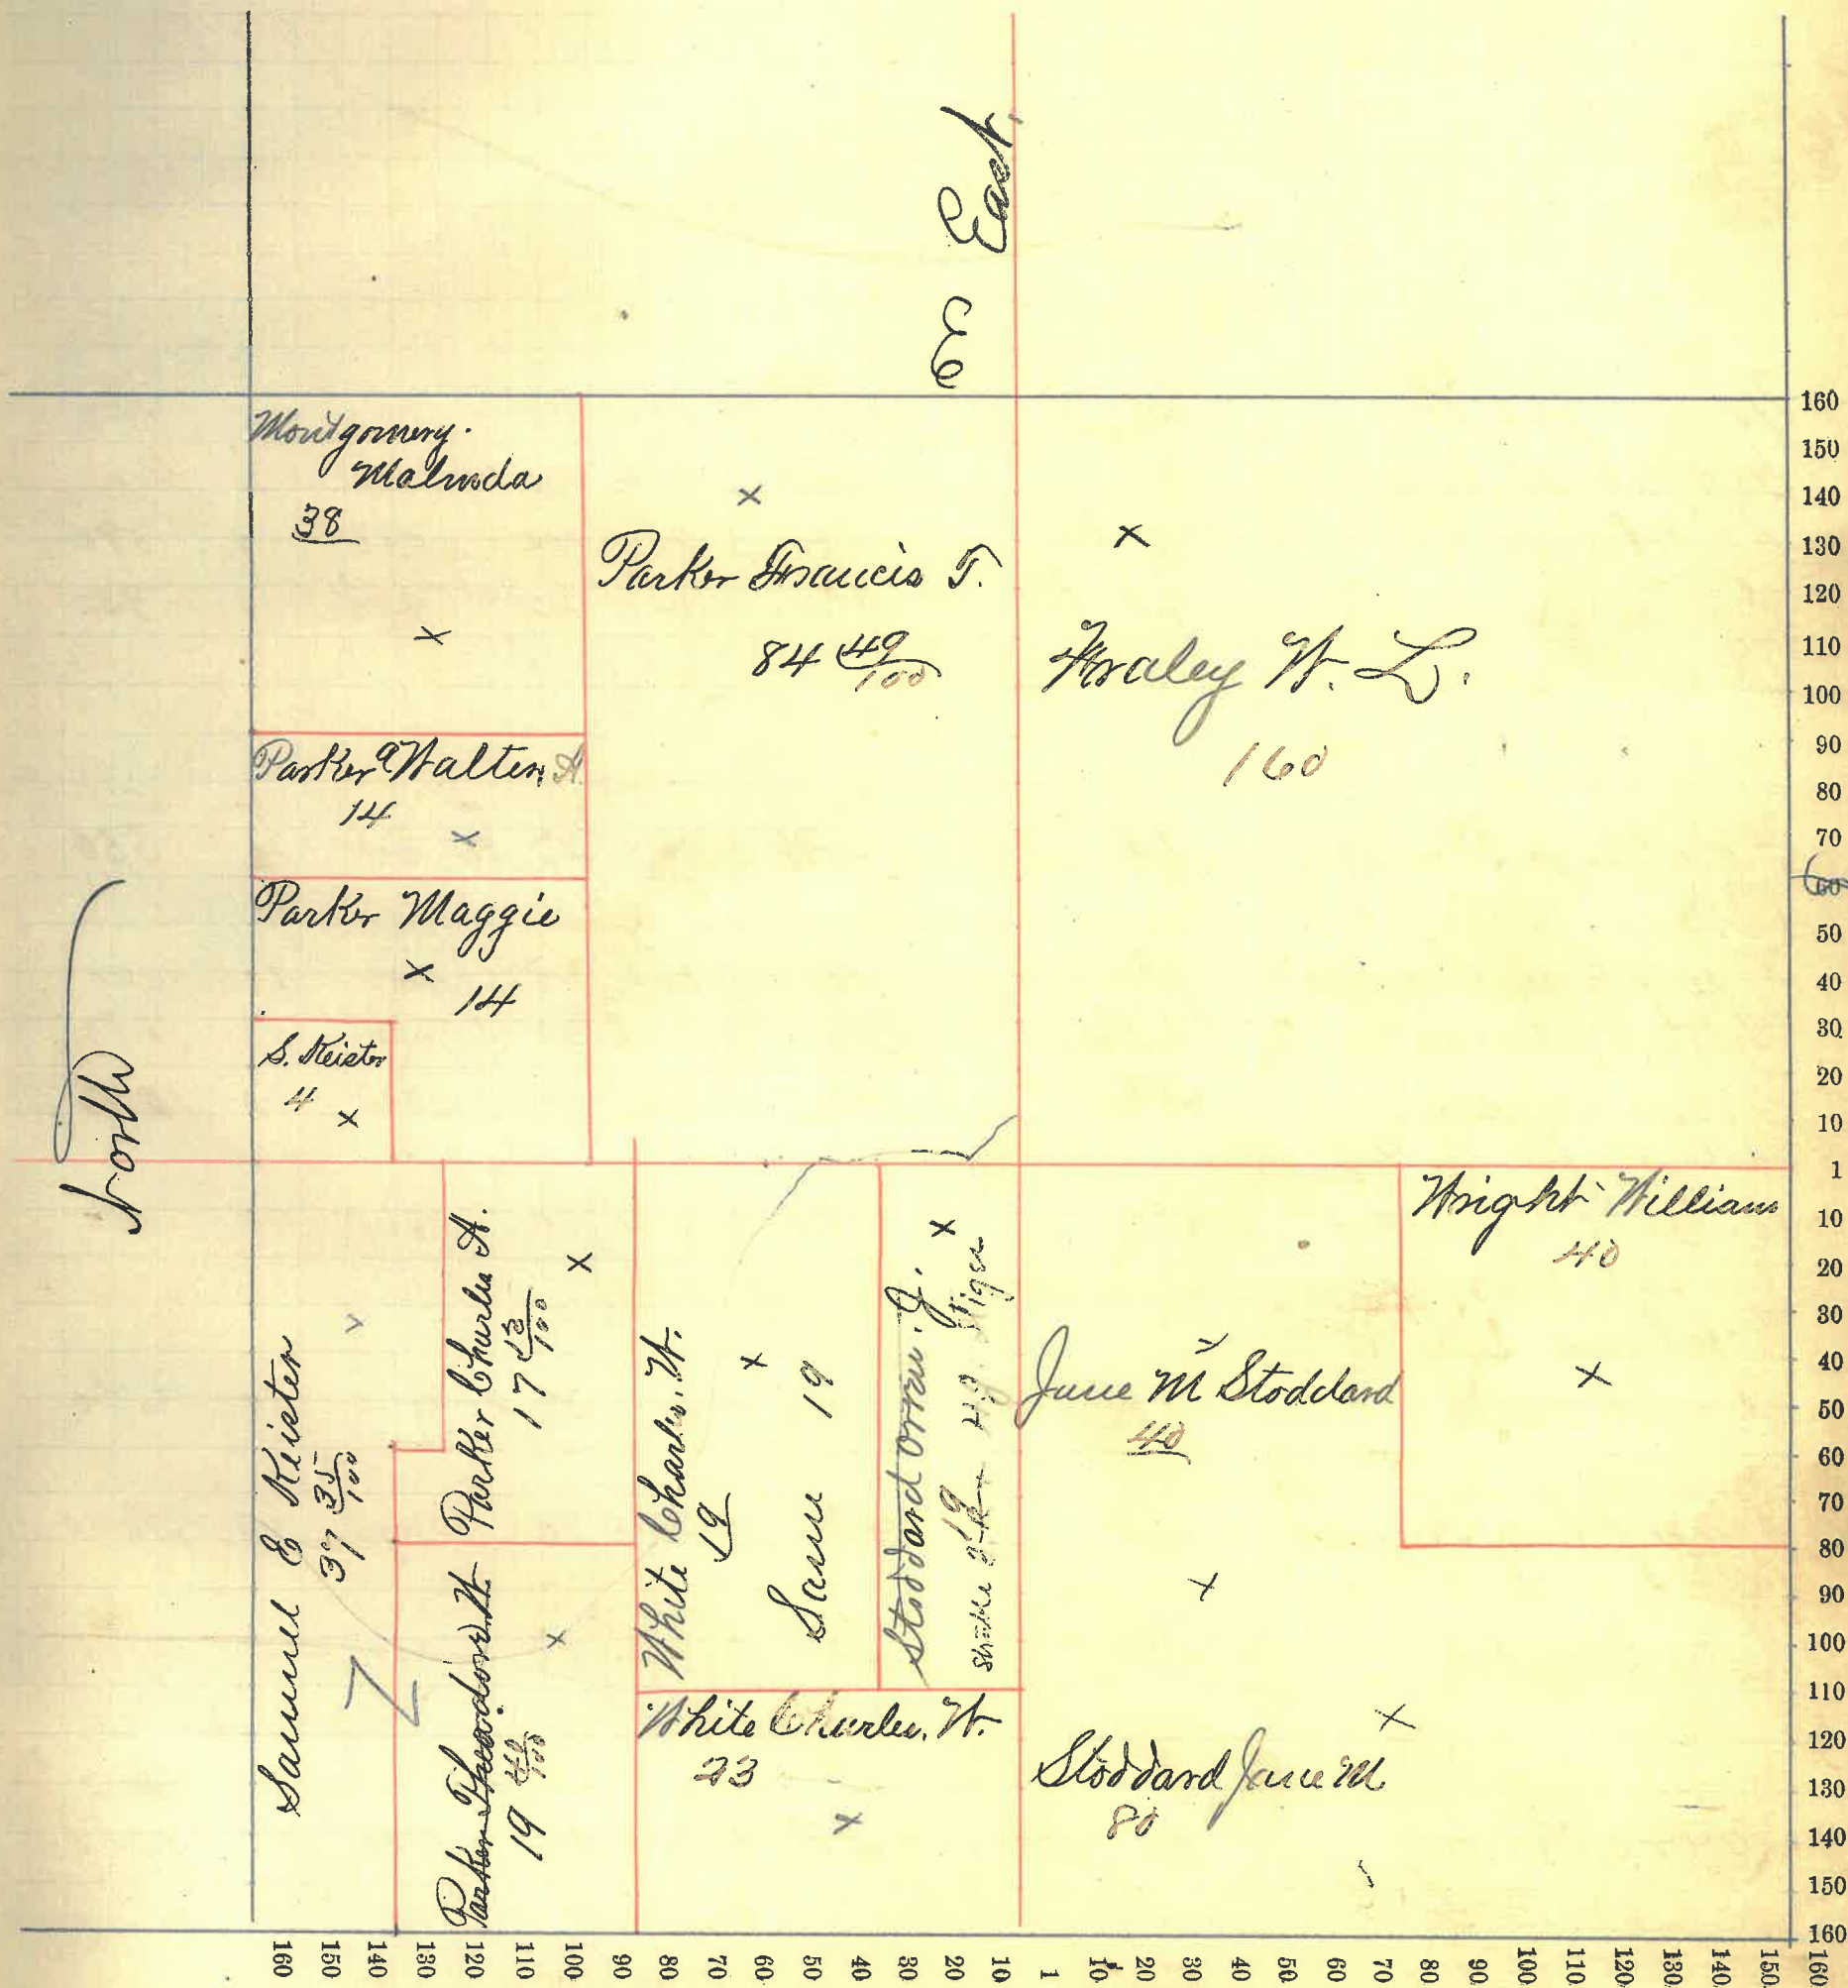 East.
Montgomery.
Malinda
38
X
Parker Walter. A.
14
X
Parker Maggie
X
14
S. Keister
4
X
X
Parker Francis T.
84 49/100
X
Fraley W. L.
160
North
Samuel E Keister
37 35/100
Parker Charles A.
17 13/100
X
Parker Theodore W.
19
X
White Charles. W.
19
X
Same 19
Stoddard Orrin. J.
X
White Charles. W.
23
X
Jane M Stoddard
40
X
Wright William
40
X
X
Stoddard Jane M
80
160
150
140
130
120
110
100
90
80
70
60
50
40
30
20
10
1
10
20
30
40
50
60
70
80
90
100
110
120
130
140
150
160
160 150 140 130 120 110 100 90 80 70 60 50 40 30 20 10 1 10 20 30 40 50 60 70 80 90 100 110 120 130 140 150 160